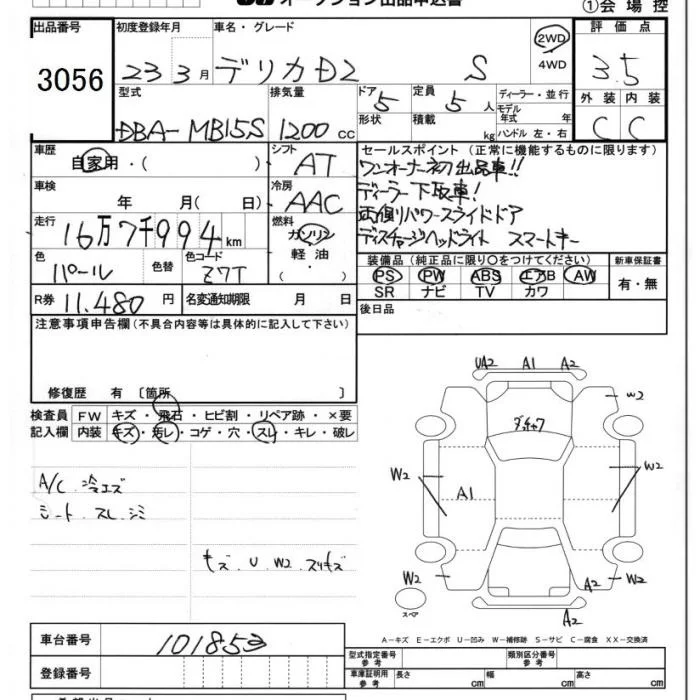 オークション出品申込書
①会場控
出品番号
3056
初度登録年月
23 3月
車名・グレード
デリカD2 S
2WD
4WD
評価点
3.5
外装 内装
C C
型式
DBA-MB15S
排気量
1200 cc
ドア
5
定員
5 人
ディーラー・並行
モデル
年式 年
形状
積載 kg
ハンドル 左・右
車歴
自家用・( )
シフト
AT
セールスポイント (正常に機能するものに限ります)
ワンオーナー初出品車!!
ディーラー下取車!
両側パワースライドドア
ディスチャージヘッドライト スマートキー
車検
年 月( 日)
冷房
AAC
走行
16万7千994km
燃料
ガソリン
軽油
・( )
色
パール
色替
色コード
Z7T
装備品 (純正品に限り○をつけてください)
PS PW ABS エアB AW
SR ナビ TV カワ
新車保証書
有・無
R券 11,480 円
名変通知期限 月 日
後日品
注意事項申告欄(不具合内容等は具体的に記入して下さい)
修復歴 有〔箇所 〕
検査員 FW キズ・飛石・ヒビ割・リペア跡・×要
記入欄 内装 キズ・汚レ・コゲ・穴・スレ・キレ・破レ
A/C 冷エズ
シート スレ シミ
キズ U W2 スリキズ
UA2 A1 A2
W2
W2
W2
A1
W2 A2 W2
A2
スペア
A-キズ E-エクボ U-凹み W-補修跡 S-サビ C-腐食 XX-交換済
車台番号
101853
登録番号
型式指定番号
参考
類別区分番号
参考
車庫証明用
参考
長さ cm
幅 cm
高さ cm